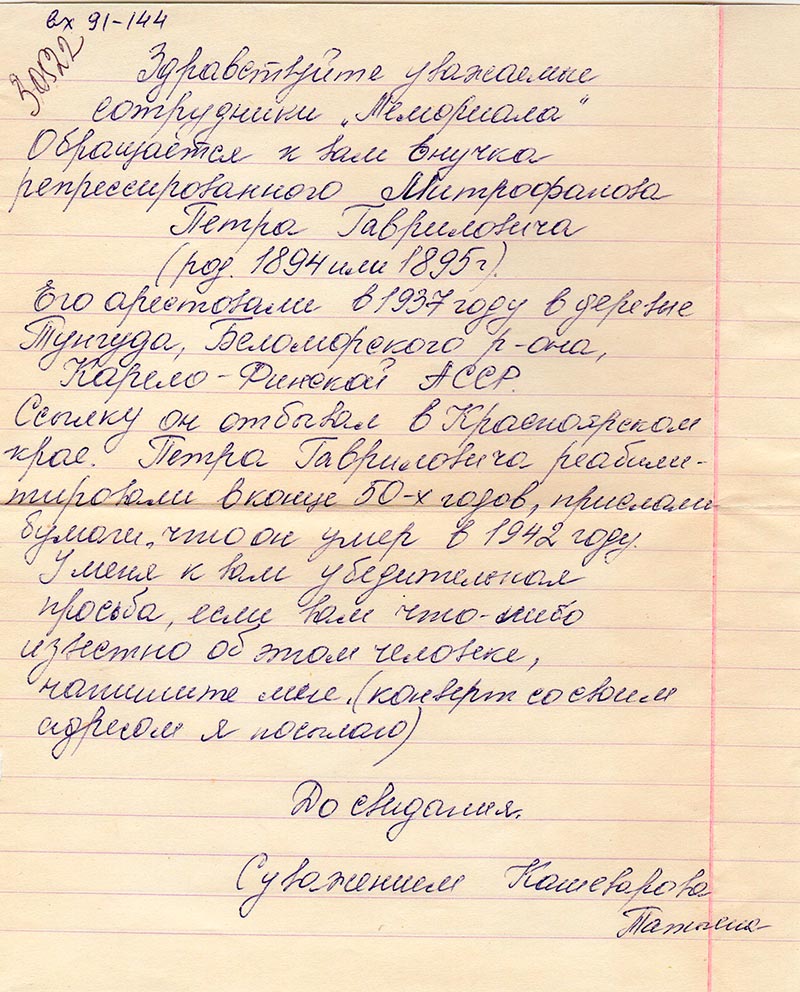 вх 91-144
30522
Здравствуйте уважаемые
сотрудники „Мемориала"
Обращается к вам внучка
репрессированного Митрофанова
Петра Гавриловича
(род. 1894 или 1895 г).
Его арестовали в 1937 году в деревне
Тунгуда, Беломорского р-она,
Карело-Финской АССР.
Ссылку он отбывал в Красноярском
крае. Петра Гавриловича реабили-
тировали в конце 50-х годов, прислали
бумаги, что он умер в 1942 году.
У меня к вам убедительная
просьба, если вам что-либо
известно об этом человеке,
напишите мне. (конверт со своим
адресом я посылаю)
До свидания.
С уважением Кашеварова
Татьяна